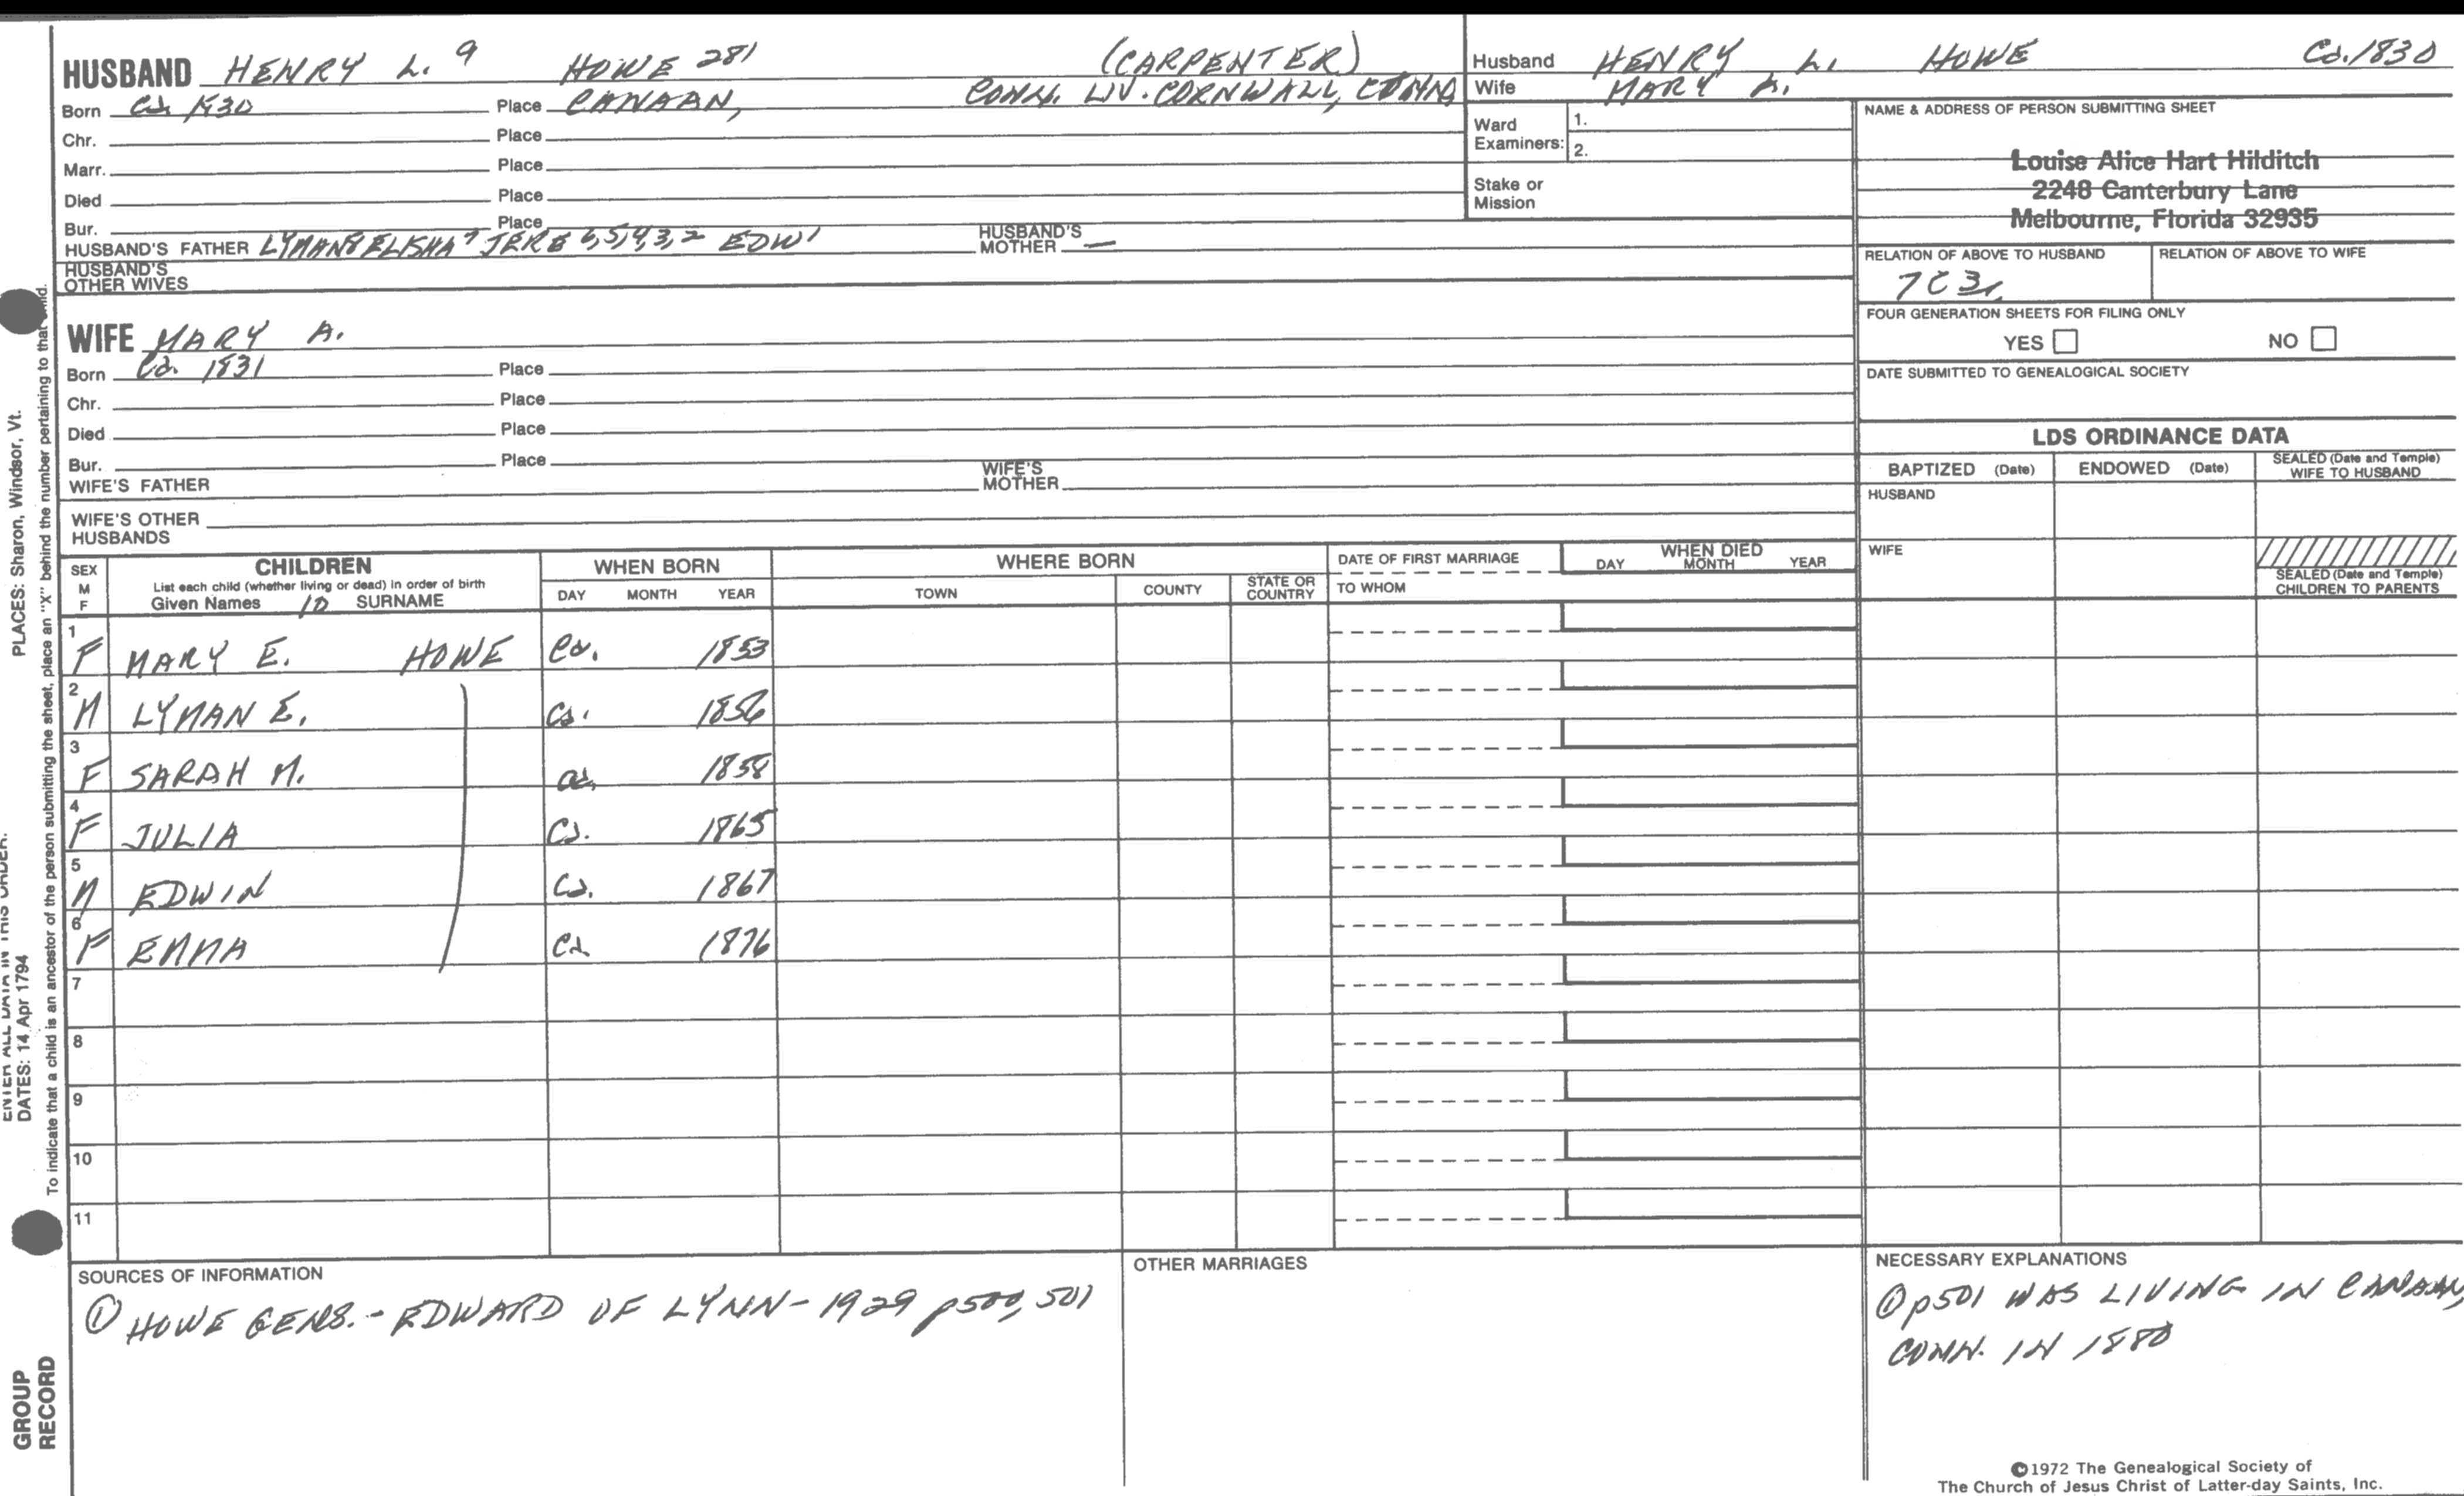 HUSBAND HENRY L. 9 HOWE 281 (CARPENTER)
Born Ca 1830 Place CANAAN, CONN. LIV. CORNWALL, CONN
Chr. Place
Marr. Place
Died Place
Bur. Place
HUSBAND'S FATHER LYMAN 8 ELISHA 7 JERE 6,5,4,3,2 EDW 1 HUSBAND'S MOTHER —
HUSBAND'S OTHER WIVES
Husband HENRY L. HOWE Ca. 1830
Wife MARY A.
Ward Examiners: 1.
2.
Stake or Mission
NAME & ADDRESS OF PERSON SUBMITTING SHEET
Louise Alice Hart Hilditch
2248 Canterbury Lane
Melbourne, Florida 32935
RELATION OF ABOVE TO HUSBAND RELATION OF ABOVE TO WIFE
7C3r
FOUR GENERATION SHEETS FOR FILING ONLY
YES NO
DATE SUBMITTED TO GENEALOGICAL SOCIETY
WIFE MARY A.
Born Ca. 1831 Place
Chr. Place
Died Place
Bur. Place
WIFE'S FATHER WIFE'S MOTHER
WIFE'S OTHER HUSBANDS
LDS ORDINANCE DATA
BAPTIZED (Date) ENDOWED (Date) SEALED (Date and Temple) WIFE TO HUSBAND
HUSBAND
WIFE
SEALED (Date and Temple) CHILDREN TO PARENTS
SEX M F
CHILDREN
List each child (whether living or dead) in order of birth
Given Names 10 SURNAME
WHEN BORN
DAY MONTH YEAR
WHERE BORN
TOWN COUNTY STATE OR COUNTRY
DATE OF FIRST MARRIAGE
TO WHOM
WHEN DIED
DAY MONTH YEAR
1 F MARY E. HOWE Ca. 1853
2 M LYMAN E. Ca. 1856
3 F SARAH M. Ca. 1858
4 F JULIA Ca. 1865
5 M EDWIN Ca. 1867
6 F EMMA Ca 1876
7
8
9
10
11
SOURCES OF INFORMATION
① HOWE GENS. - EDWARD OF LYNN - 1929 p500, 501
OTHER MARRIAGES
NECESSARY EXPLANATIONS
① p501 WAS LIVING IN CANAAN,
CONN. IN 1880
©1972 The Genealogical Society of
The Church of Jesus Christ of Latter-day Saints, Inc.
PLACES: Sharon, Windsor, Vt.
ENTER ALL DATA IN THIS ORDER:
DATES: 14 Apr 1794
To indicate that a child is an ancestor of the person submitting the sheet, place an "X" behind the number pertaining to that child.
GROUP
RECORD